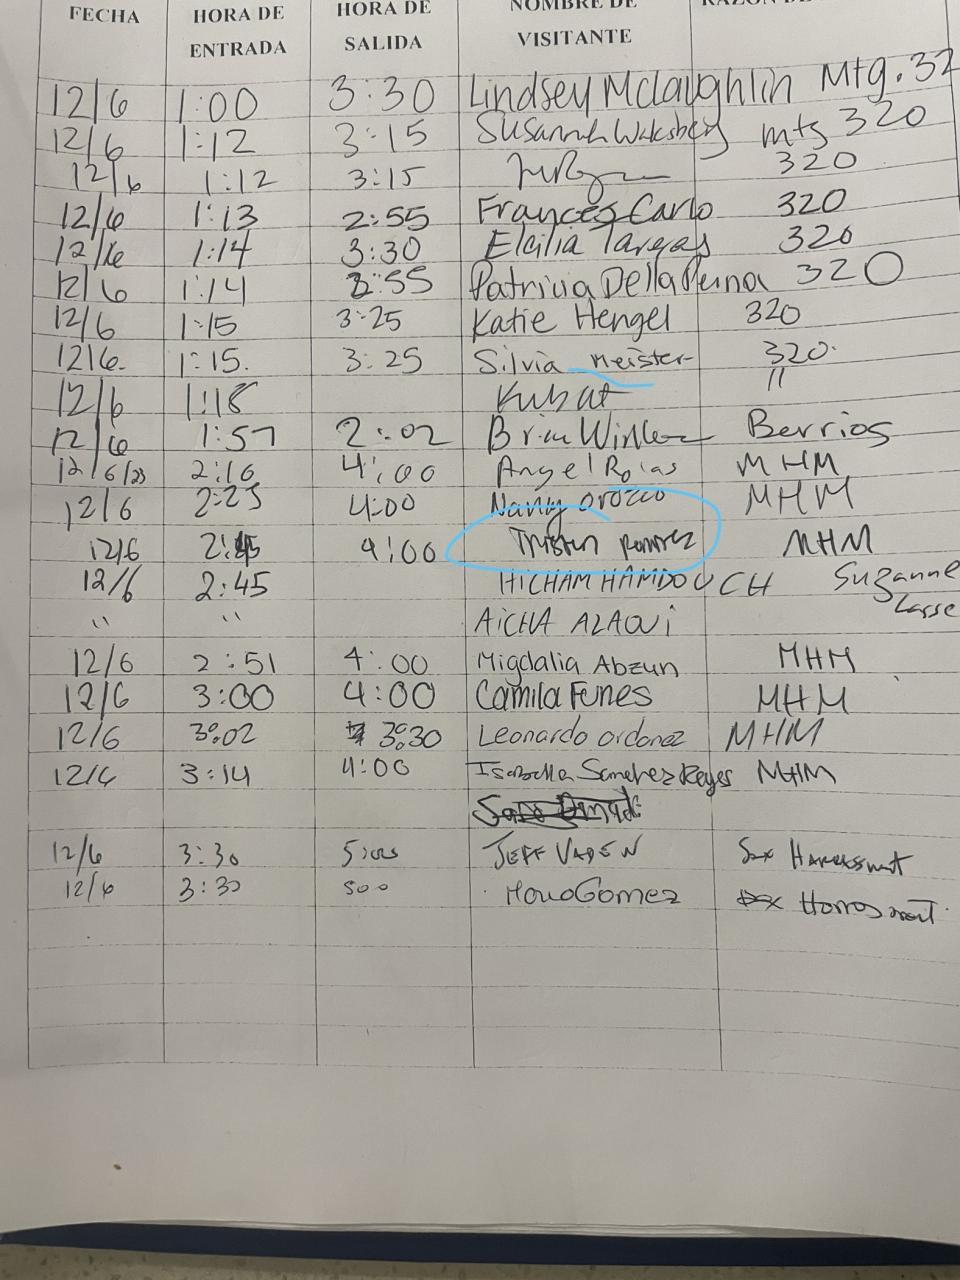 FECHA HORA DE ENTRADA HORA DE SALIDA NOMBRE DE VISITANTE
12/6 1:00 3:30 Lindsey McLaughlin Mtg. 32
12/6 1:12 3:15 Susannah mtg 320
12/6 1:12 3:15 320
12/6 1:13 2:55 Frances Carlo 320
12/6 1:14 3:30 Elcilia Vargas 320
12/6 1:14 2:55 Patricia Della Penna 320
12/6 1:15 3:25 Katie Hengel 320
12/6. 1:15. 3:25 Silvia Meister 320.
12/6 1:18 Kubat "
12/6 1:57 2:02 Berrios
12/6/23 2:10 4:00 Angel Rojas MHM
12/6 2:25 4:00 Nancy Orozco MHM
12/6 2:45 4:00 Tristen Ramirez MHM
12/6 2:45 HICHAM HAMDOUCH Suzanne Lasse
" " AICHA ALAOUI
12/6 2:51 4:00 Migdalia Abzun MHM
12/6 3:00 4:00 Camila Funes MHM
12/6 3:02 3:30 Leonardo Ordonez MHM
12/6 3:14 4:00 Isabella Sanchez Reyes MHM
12/6 3:30 JEFF VADEN Sex Harassment
12/6 3:30 500 Gomez